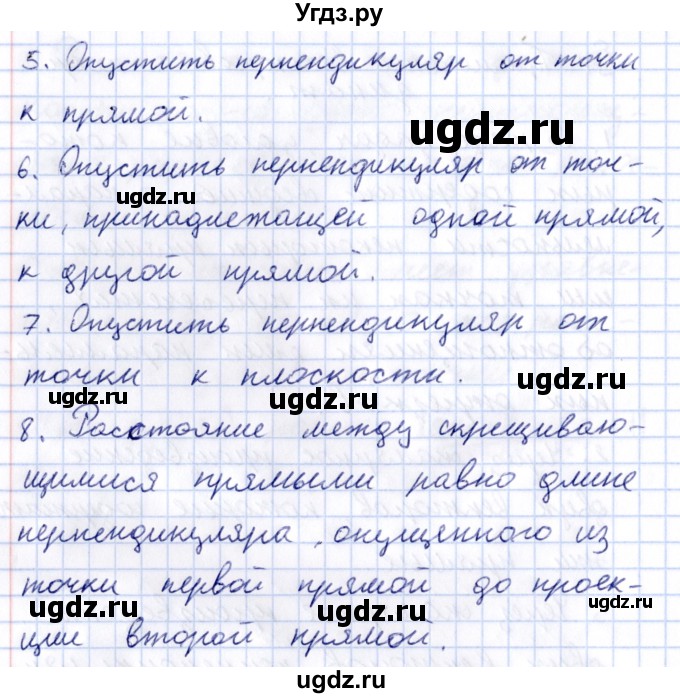 Угдз.ру
5. Опустить перпендикуляр от точки
к прямой.
ugdz.ru
ugdz.ru
6. Опустить перпендикуляр от точ-
ки, принадлежащей одной прямой,
ugdz.ru
к другой прямой.
ugdz.ru
7. Опустить перпендикуляр от
точки к плоскости.
ugdz.ru
ugdz.ru
8. Расстояние между скрещиваю-
щимися прямыми равно длине
ugdz.ru
перпендикуляра, опущенного из
точки первой прямой до проек-
ugdz.ru
ugdz.ru
ции второй прямой.
ugdz.ru